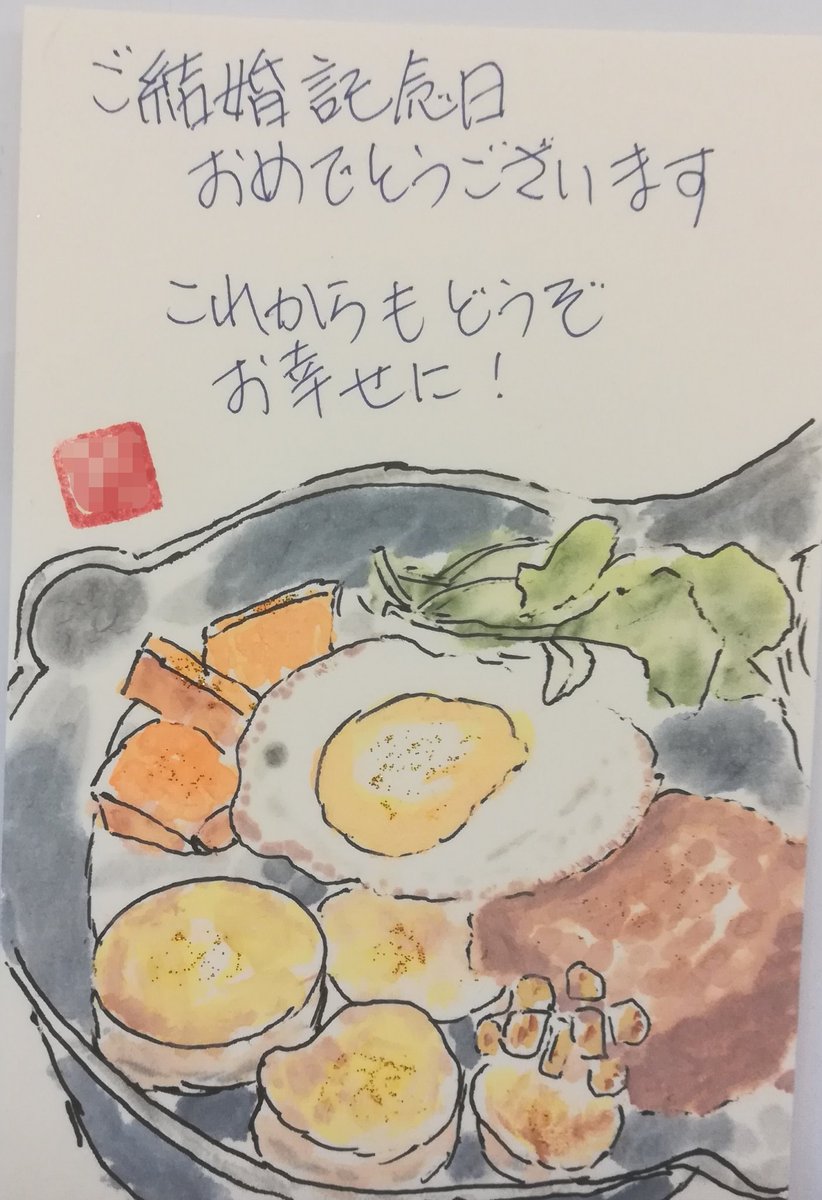 ご結婚記念日
おめでとうございます
これからもどうぞ
お幸せに！